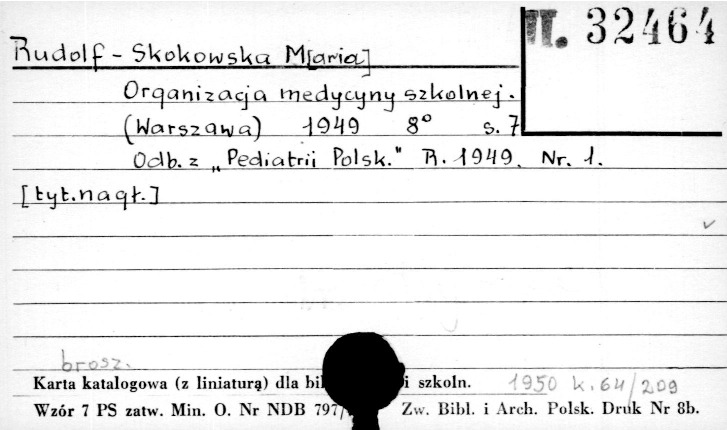 II. 32464
Rudolf-Skokowska M[aria]
Organizacja medycyny szkolnej.
(Warszawa) 1949 8° s. 7
Odb. z „Pediatrii Polsk." R. 1949. Nr. 1.
[tyt. nagł.]
brosz.
Karta katalogowa (z liniaturą) dla i szkoln. 1950 k. 64/209
Wzór 7 PS zatw. Min. O. Nr NDB 797/ Zw. Bibl. i Arch. Polsk. Druk Nr 8b.